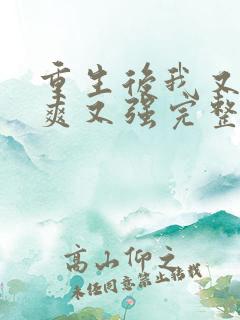 重生后我又
爽又强完整
高山仰之
未经同意禁止转载